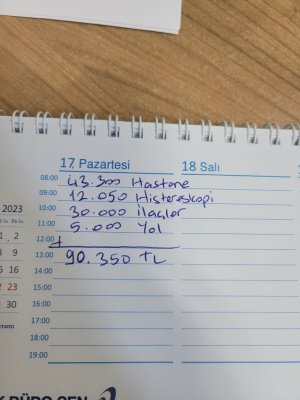 17 Pazartesi
18 Salı
08:00 43.300 Hastane
09:00 12.050 Histereskopi
10:00 30.000 ilaçlar
11:00 5.000 Yol
12:00 +
13:00 90.350 TL
14:00
15:00
16:00
17:00
18:00
19:00
2023
1 2
8 9
5 16
2 23
30